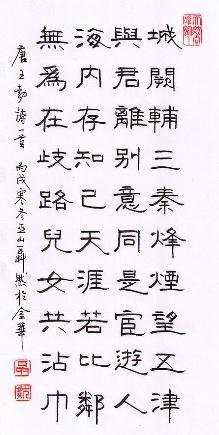 城闕輔三秦烽煙望五津
與君離別意同是宦遊人
海内存知己天涯若比鄰
無爲在歧路兒女共沾巾
唐王勃詩一首 丙戌寒冬山然於金華